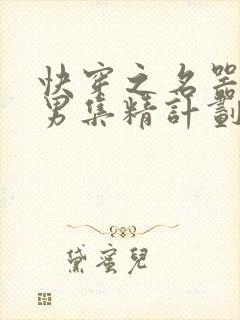 快穿之名器
男集精計劃
黛蜜兒